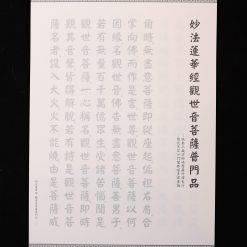 妙法蓮華經觀世音菩薩普門品
爾時無盡意菩薩即從座起偏袒右肩合
掌向佛而作是言世尊觀世音菩薩以何
因緣名觀世音佛告無盡意菩薩善男子
若有無量百千萬億眾生受諸苦惱聞是
觀世音菩薩一心稱名觀世音菩薩即時
觀其音聲皆得解脫若有持是觀世音菩
薩名者設入大火火不能燒由是菩薩威